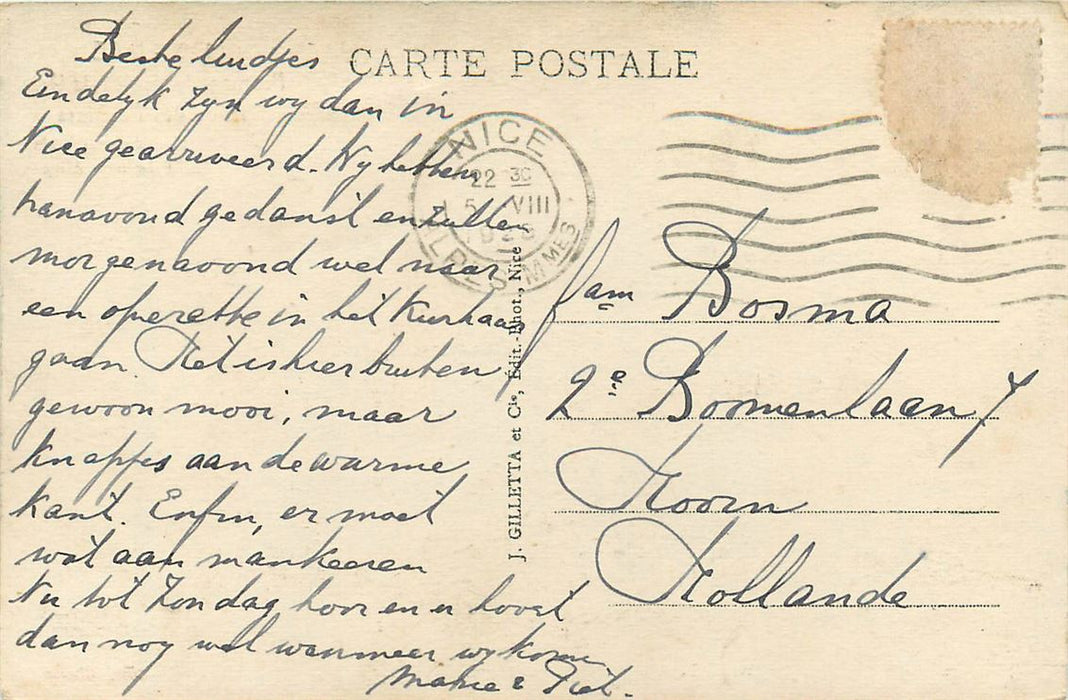 CARTE POSTALE
Beste luidjes
Eindelyk zyn wy dan in
Nice gearriveerd. Wy hebben
vanavond gedanst en zullen
morgenavond wel naar
een operette in het Kurhaus
gaan. Het is hier buiten
gewoon mooi, maar
knapjes aan de warme
kant. Enfin, er moet
wat aan mankeeren
Nu tot Zondag, hoor en u hoort
dan nog wel wanneer wy komen
Marie & Piet.
NICE
22 30
5 VIII
ALPES MMES
J. GILLETTA et Cie, Édit.-Phot., Nice
fam Bosma
2e Boomenlaan 7
Hoorn
Hollande